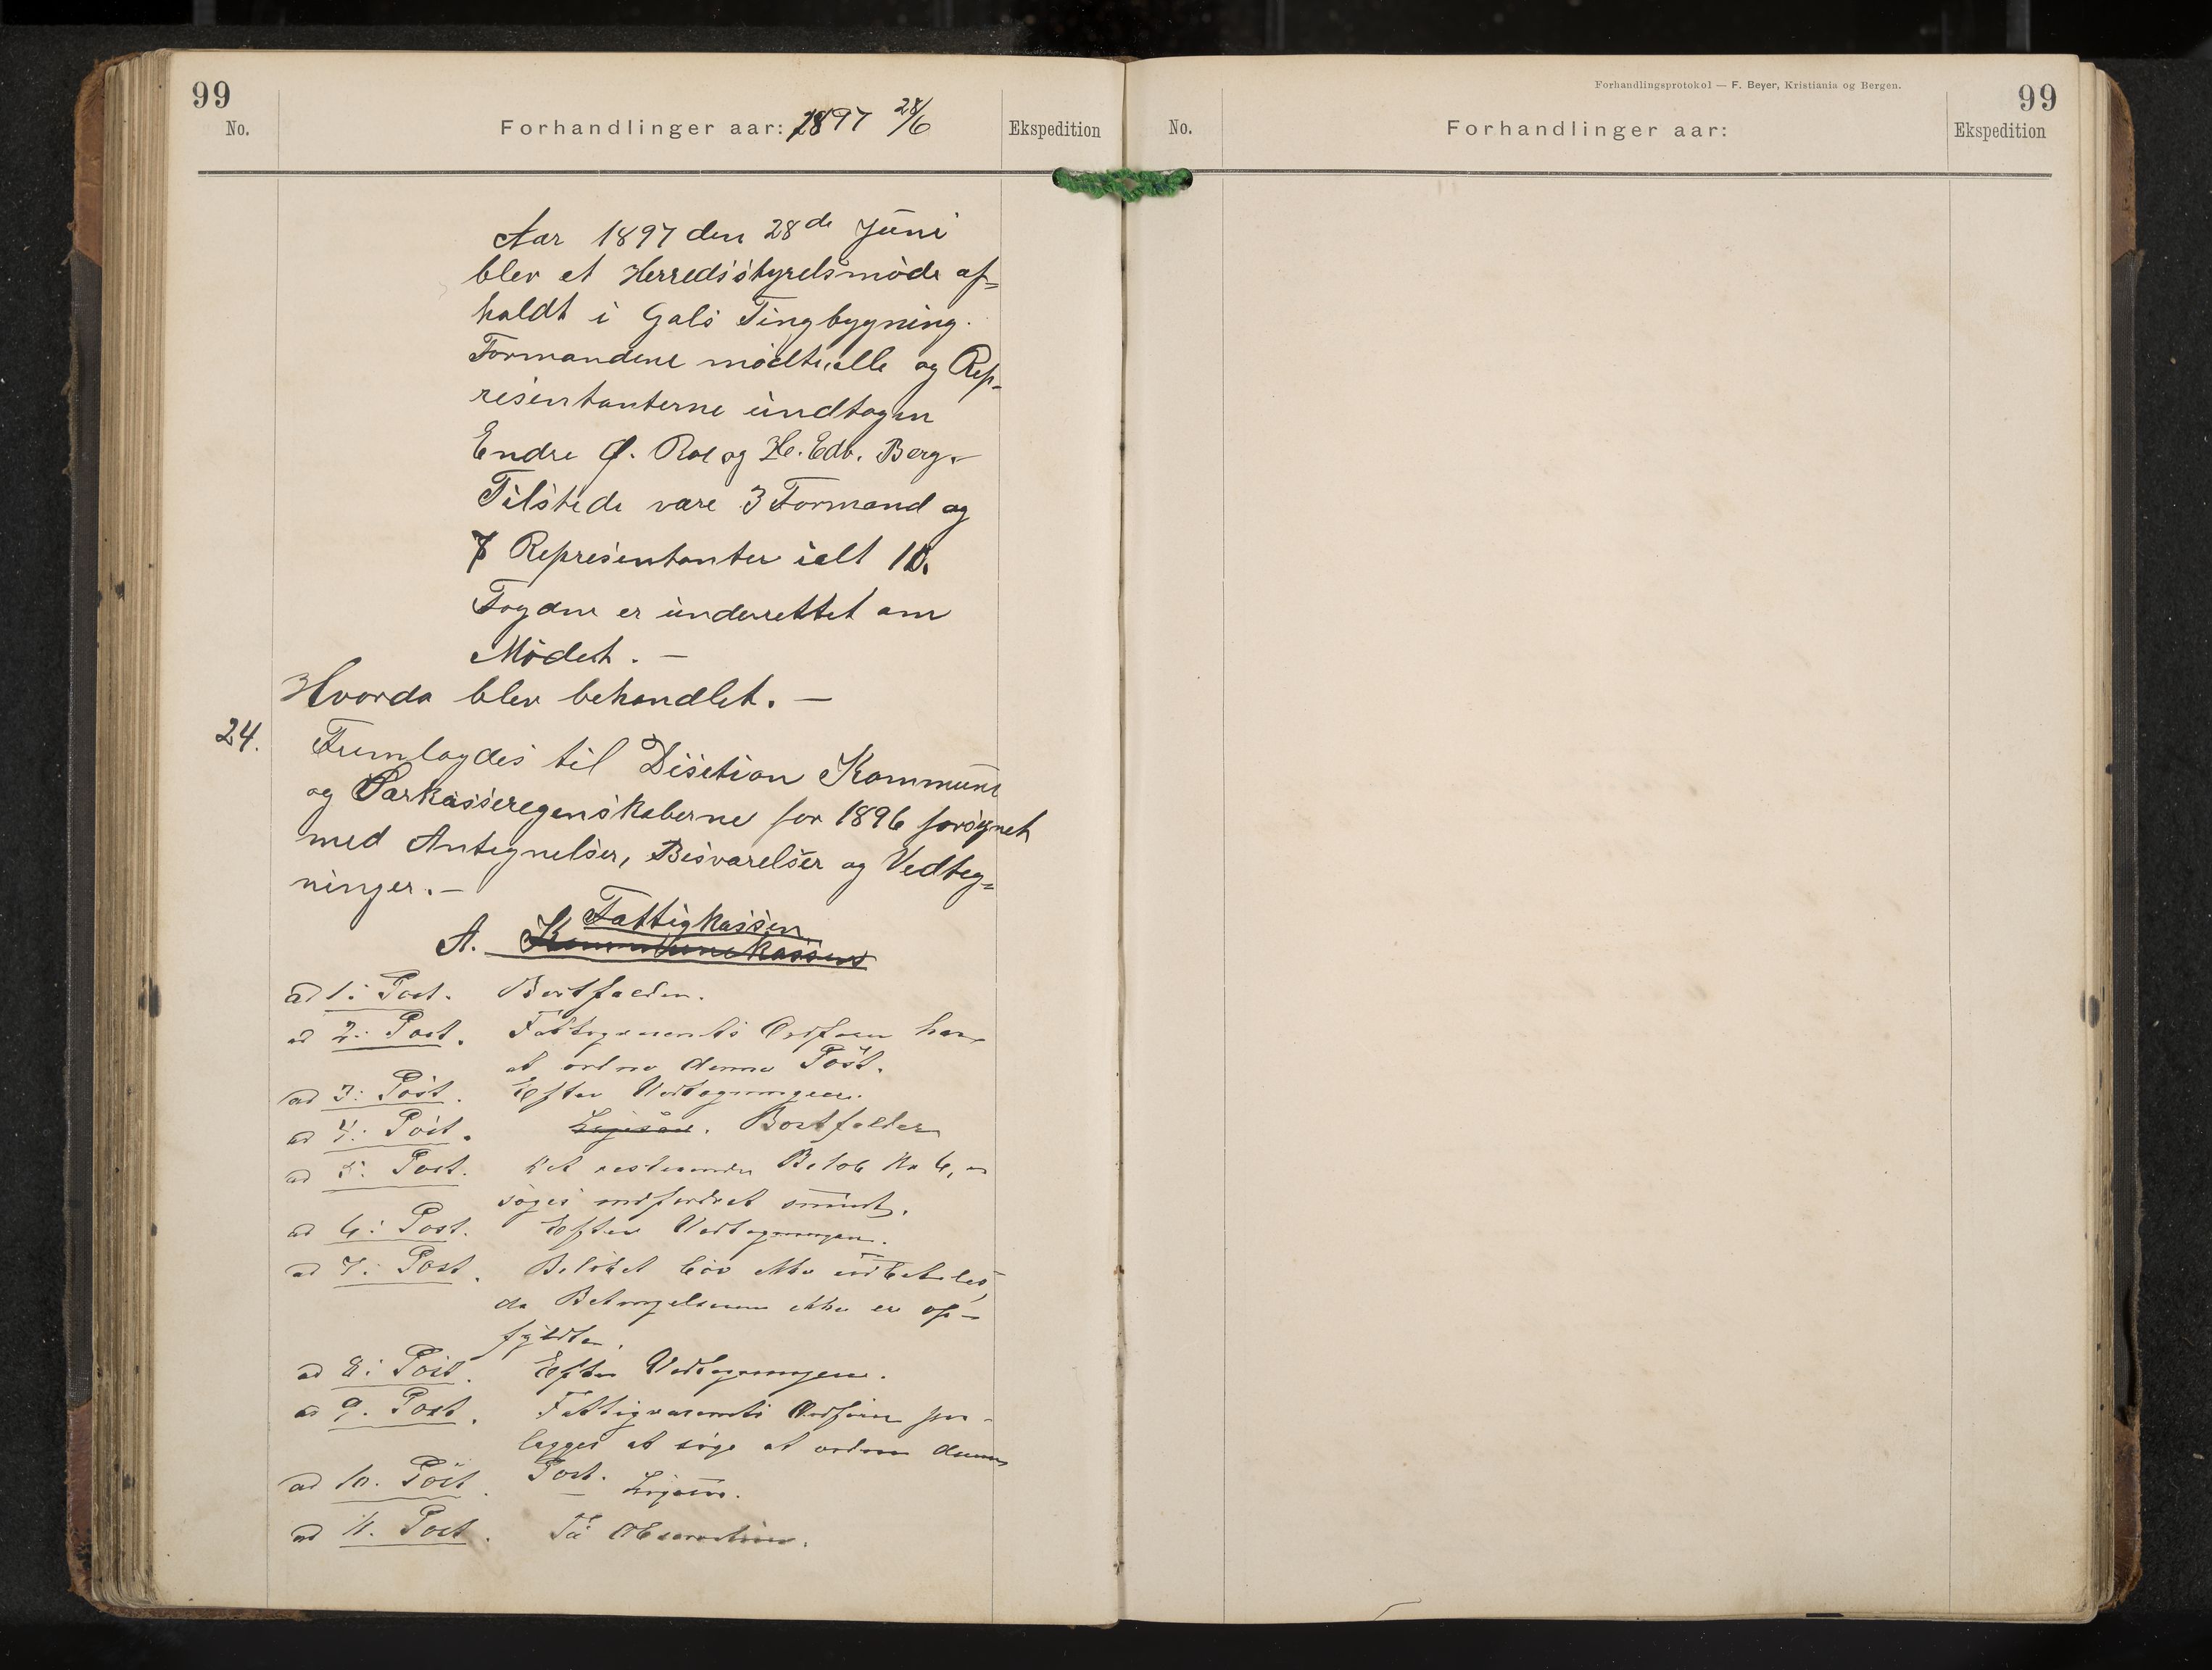 99
No.
Forhandlinger aar: 1897 28/6
Ekspedition
Aar 1897 den 28de Juni
blev et Herredsstyrelsmøde af=
holdt i Gols Tingbygning.
Formændene mødte alle og Rep-
resentanterne undtagen
Endre Ø. Roe og H. Edv. Berg.
Tilstede vare 3 Formænd og
7 Representanter ialt 10.
Fogden er underrettet om
Mødet. —
Hvorda blev behandlet. —
24.
Fremlagdes til Disition Kommune
og Parkasseregenskaberne for 1896 forsynet
med Antegnelser, Besvarelser og Vedteg=
ninger. —
Fattigkassen
A. Kommunekassen
ad 1: Post. Bortfalder.
ad 2: Post. Fattigvæsenets Ordfører har
at ordne denne Post.
ad 3: Post. Efter Vedtegningen.
ad 4: Post. Ligesaa. Bortfalder
ad 5: Post. Det resterende Beløb Kr 6,
søges indfordret snarest.
ad 6: Post. Efter Vedtegningen.
ad 7: Post. Beløbet bør ikke udbetales,
da Betingelserne ikke er op-
fyldte.
ad 8: Post. Efter Vedtegningen.
ad 9. Post. Fattigvæsenets Ordfører paa-
lægges at søge at ordne denne
Post.
ad 10. Post. Ligesaa.
ad 11. Post. Til Observation.
Forhandlingsprotokol — F. Beyer, Kristiania og Bergen.
99
No.
Forhandlinger aar:
Ekspedition